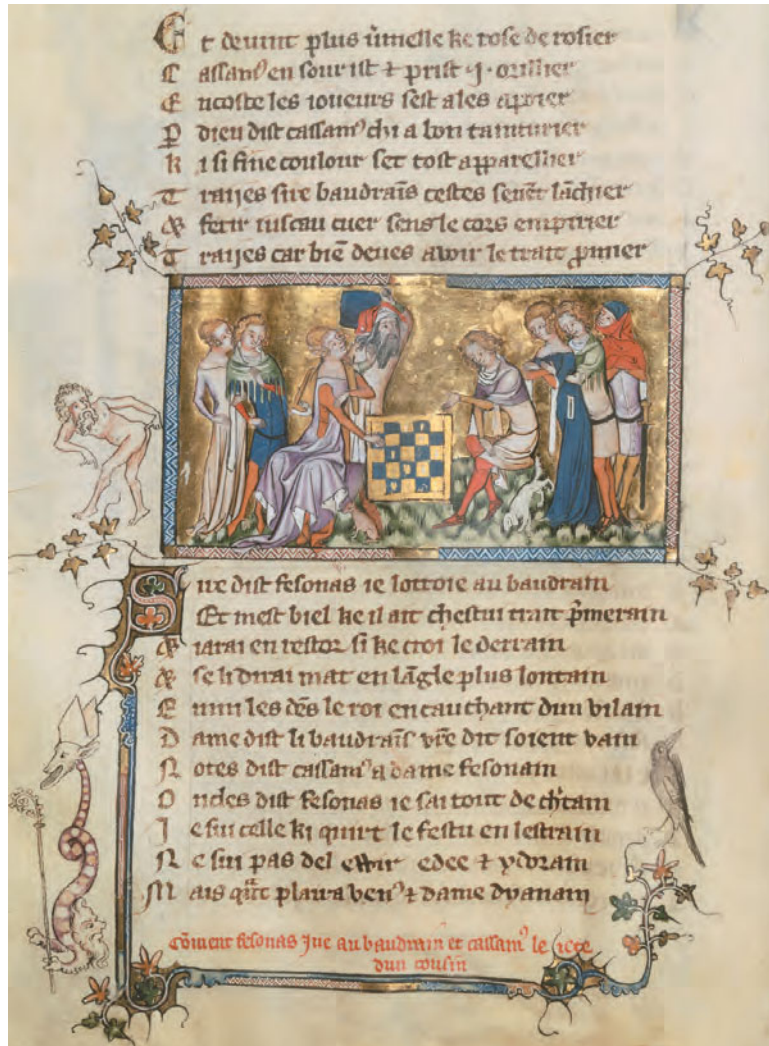 Et deuint plus v̾melle ke rose de rosier
Cassamꝰ en sourist ⁊ prist .j. orillier
Encoste les ioueurs sest ales apoier
ꝑ dieu dist cassamꝰ chi a bon tainturier
ki si fine coulour set tost apparellier
Traijes sire baudraīs cestes seuēt lāchier
⁊ ferir iuscau cuer sens le cors empirier
Traijes car biē deues auoir le trait p̾mier
Sire dist fesonas ie lottoie au baudrain
Et mest biel ke il ait chestui trait p̾merain
⁊ iarai en restor si ke croi le derrain
⁊ se li dirai mat en lāgle plus lontain
Enmi les dēs le roi en cauchant dun vilain
Dame dist li baudraīs vr̄e dit soient vain
Notes dist cassamꝰ a dame fesonain
Oncles dist fesonas ie sai tout de ch̾tain
Je sui celle ki quirt le festu en lestrain
Ne sui pas del edee ⁊ ydorain
Mais qⁿt plaira venꝰ ⁊ dame dyanain
cōment fesonas jue au baudrain et cassamꝰ le iete
dun cousin